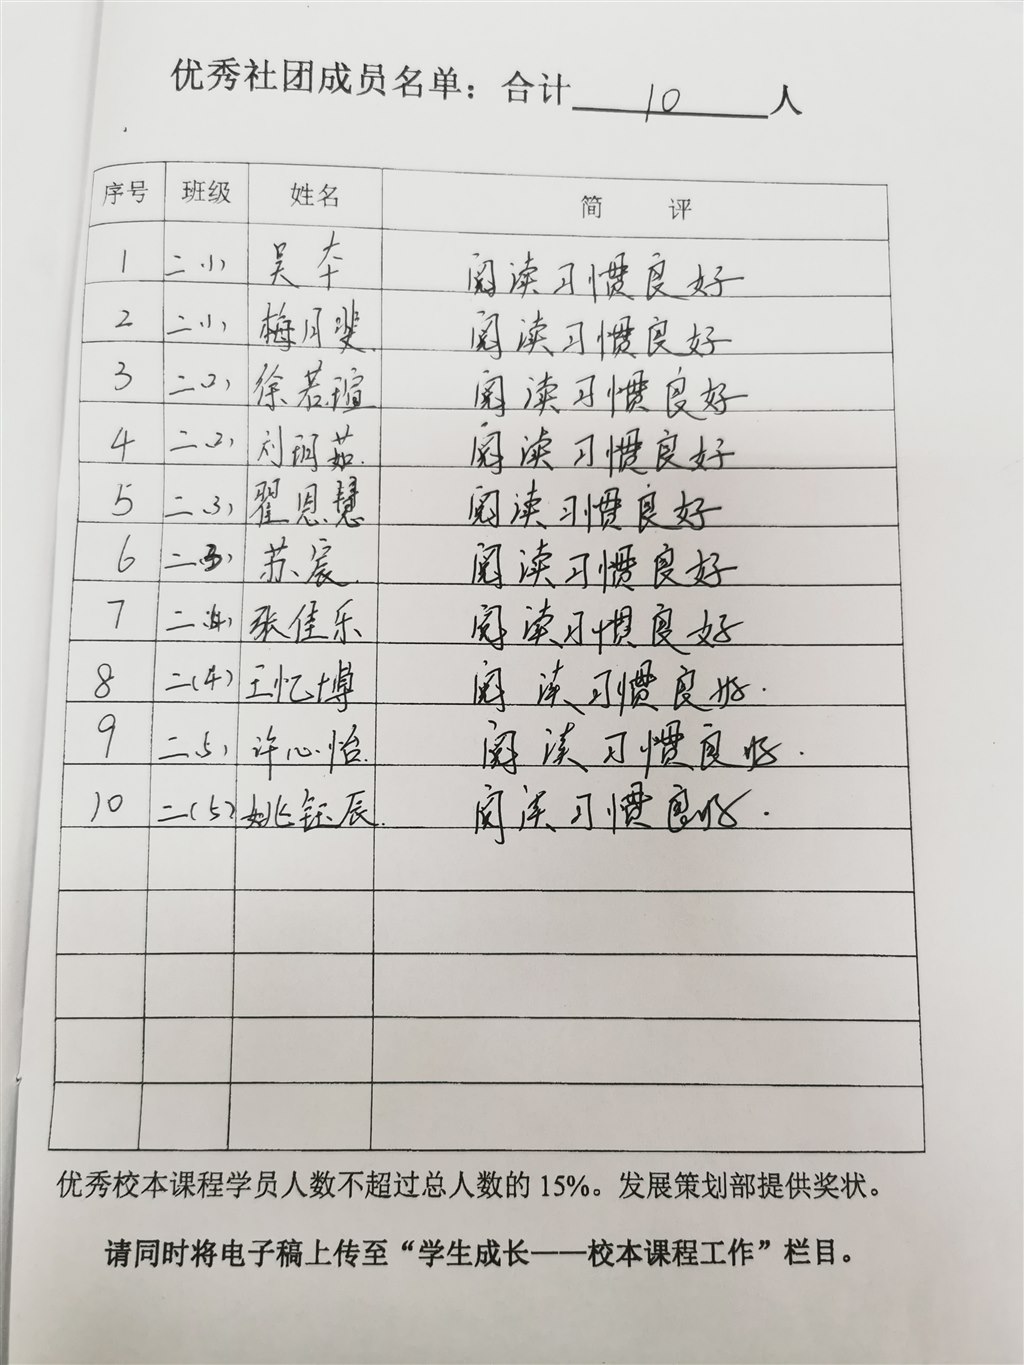 优秀社团成员名单：合计 10 人
序号 班级 姓名 简 评
1 二(1) 吴本 阅读习惯良好
2 二(1) 梅月斐 阅读习惯良好
3 二(2) 徐若瑄 阅读习惯良好
4 二(2) 刘珥茹 阅读习惯良好
5 二(3) 翟恩慧 阅读习惯良好
6 二(3) 苏宸 阅读习惯良好
7 二(4) 张佳乐 阅读习惯良好
8 二(4) 王忆博 阅读习惯良好.
9 二(5) 许心怡 阅读习惯良好.
10 二(5) 姚钰辰 阅读习惯良好.
优秀校本课程学员人数不超过总人数的 15%。发展策划部提供奖状。
请同时将电子稿上传至“学生成长——校本课程工作”栏目。